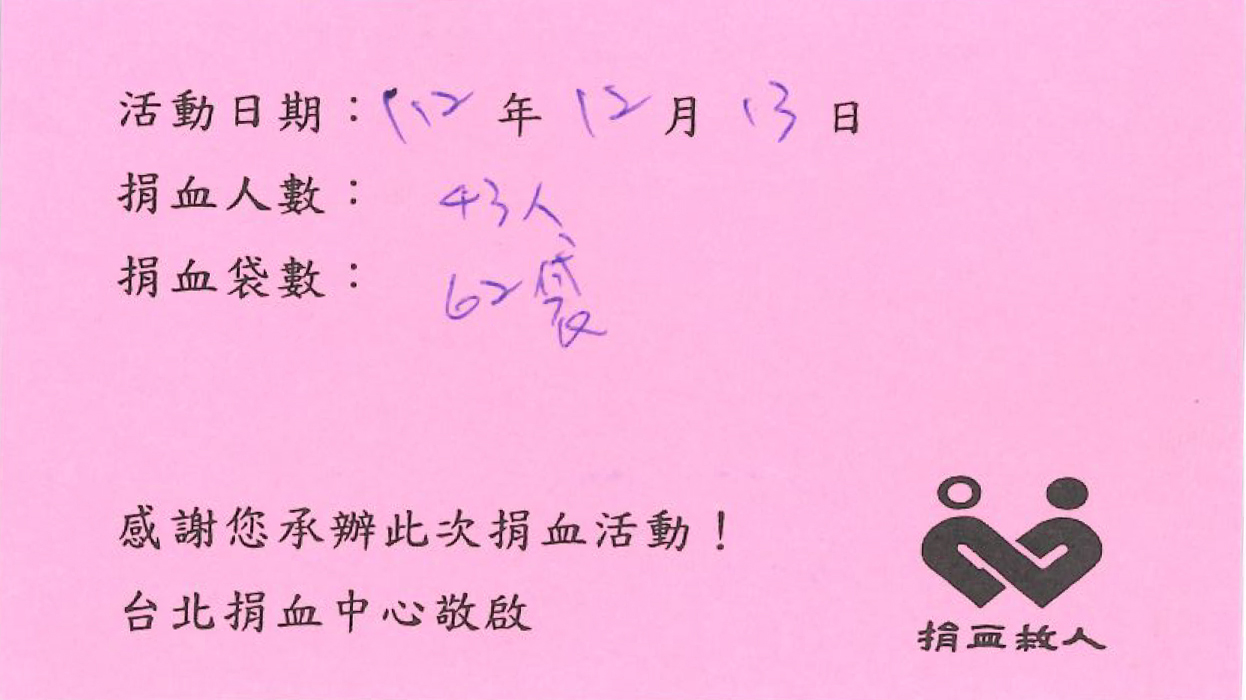 活動日期：112 年 12 月 13 日
捐血人數： 43人
捐血袋數： 62袋
感謝您承辦此次捐血活動！
台北捐血中心敬啟
捐血救人